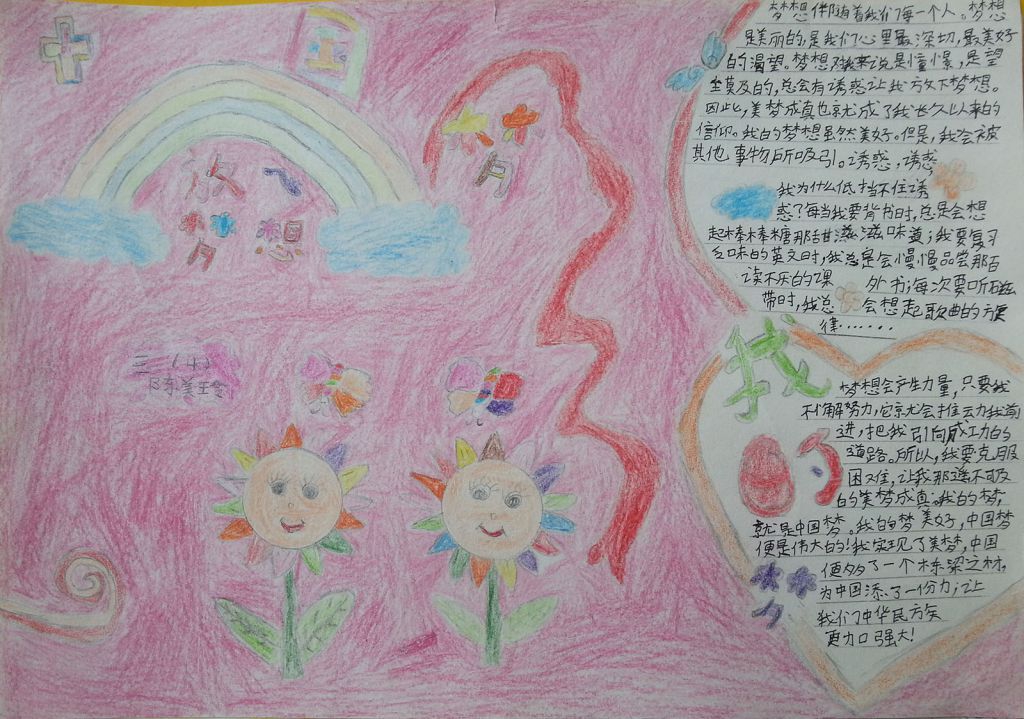 放飞
梦想
梦
三(4)
陈美玲
梦想伴随着我们每一个人。梦想
是美丽的,是我们心里最深切,最美好
的渴望。梦想对我来说是憧憬,是望
尘莫及的,总会有诱惑让我放下梦想。
因此,美梦成真也就成了我长久以来的
信仰。我的梦想虽然美好。但是,我会被
其他事物所吸引。诱惑,诱惑
我为什么低挡不住诱
惑?每当我要背书时,总是会想
起棒棒糖那甜滋滋味道;我要复习
乏味的英文时,我总是会慢慢品尝那百
读不乐的课外书;每次要听磁
带时,我总会想起歌曲的方便
律……
我
的
梦
梦想会产生力量,只要我
不懈努力,它就会推动我前
进,把我引向成功的
道路。所以,我要克服
困难,让我那遥不可及
的美梦成真。我的梦,
就是中国梦。我的梦美好,中国梦
便是伟大的!我实现了美梦,中国
便多了一个栋梁之材,
为中国添了一份力;让
我们中华民族
更加强大!